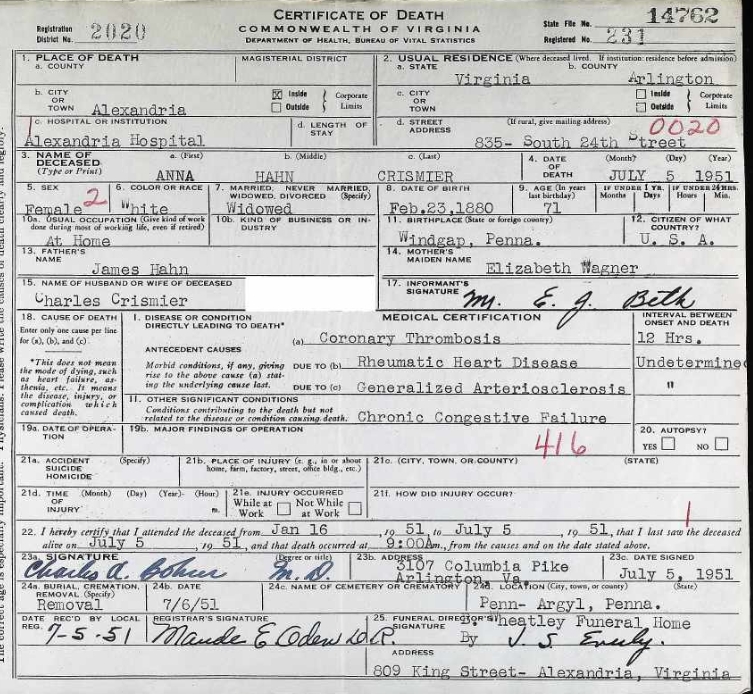 CERTIFICATE OF DEATH
COMMONWEALTH OF VIRGINIA
DEPARTMENT OF HEALTH, BUREAU OF VITAL STATISTICS
Registration District No. 2020
State File No. 14762
Registered No. 231
1. PLACE OF DEATH
a. COUNTY
MAGISTERIAL DISTRICT
2. USUAL RESIDENCE (Where deceased lived. If institution: residence before admission)
a. STATE
b. COUNTY
Virginia Arlington
b. CITY OR TOWN Alexandria
☒ Inside
☐ Outside
Corporate Limits
c. CITY OR TOWN
☐ Inside
☐ Outside
Corporate Limits
c. HOSPITAL OR INSTITUTION
Alexandria Hospital
d. LENGTH OF STAY
d. STREET ADDRESS
(If rural, give mailing address)
0020
835- South 24th Street
3. NAME OF DECEASED
(Type or Print)
a. (First) b. (Middle) c. (Last)
ANNA HAHN CRISMIER
4. DATE OF DEATH
(Month) (Day) (Year)
JULY 5 1951
5. SEX
Female 2
6. COLOR OR RACE
White
7. MARRIED, NEVER MARRIED, WIDOWED, DIVORCED (Specify)
Widowed
8. DATE OF BIRTH
Feb,23,1880
9. AGE (In years last birthday)
71
IF UNDER 1 YR.
Months Days
IF UNDER 24 HRS.
Hours Min.
10a. USUAL OCCUPATION (Give kind of work done during most of working life, even if retired)
At Home
10b. KIND OF BUSINESS OR INDUSTRY
11. BIRTHPLACE (State or foreign country)
Windgap, Penna.
12. CITIZEN OF WHAT COUNTRY?
U. S. A.
13. FATHER'S NAME
James Hahn
14. MOTHER'S MAIDEN NAME
Elizabeth Wagner
15. NAME OF HUSBAND OR WIFE OF DECEASED
Charles Crismier
17. INFORMANT'S SIGNATURE
E. J. Beth
18. CAUSE OF DEATH
Enter only one cause per line for (a), (b), and (c)
*This does not mean the mode of dying, such as heart failure, asthenia, etc. It means the disease, injury, or complication which caused death.
MEDICAL CERTIFICATION
INTERVAL BETWEEN ONSET AND DEATH
I. DISEASE OR CONDITION DIRECTLY LEADING TO DEATH*
(a) Coronary Thrombosis
12 Hrs.
ANTECEDENT CAUSES
Morbid conditions, if any, giving rise to the above cause (a) stating the underlying cause last.
DUE TO (b) Rheumatic Heart Disease
Undetermined
DUE TO (c) Generalized Arteriosclerosis
"
II. OTHER SIGNIFICANT CONDITIONS
Conditions contributing to the death but not related to the disease or condition causing death.
Chronic Congestive Failure
19a. DATE OF OPERATION
19b. MAJOR FINDINGS OF OPERATION
416
20. AUTOPSY?
YES ☐ NO ☐
21a. ACCIDENT SUICIDE HOMICIDE (Specify)
21b. PLACE OF INJURY (e. g., in or about home, farm, factory, street, office bldg., etc.)
21c. (CITY, TOWN, OR COUNTY) (STATE)
21d. TIME OF INJURY (Month) (Day) (Year) (Hour) m.
21e. INJURY OCCURRED
While at Work ☐ Not While at Work ☐
21f. HOW DID INJURY OCCUR?
22. I hereby certify that I attended the deceased from Jan 16, 19 51 to July 5, 19 51, that I last saw the deceased
alive on July 5, 19 51, and that death occurred at 9:00Am., from the causes and on the date stated above.
23a. SIGNATURE (Degree or title)
Charles A. Bohner M.D.
23b. ADDRESS
3107 Columbia Pike
Arlington, Va.
23c. DATE SIGNED
July 5, 1951
24a. BURIAL, CREMATION, REMOVAL (Specify)
Removal
24b. DATE
7/6/51
24c. NAME OF CEMETERY OR CREMATORY
24d. LOCATION (City, town, or county) (State)
Penn- Argyl, Penna.
DATE REC'D BY LOCAL REG.
7-5-51
REGISTRAR'S SIGNATURE
Maude E Oden D.R.
25. FUNERAL DIRECTOR'S SIGNATURE
Wheatley Funeral Home
By J. S. Everly.
ADDRESS
809 King Street- Alexandria, Virginia